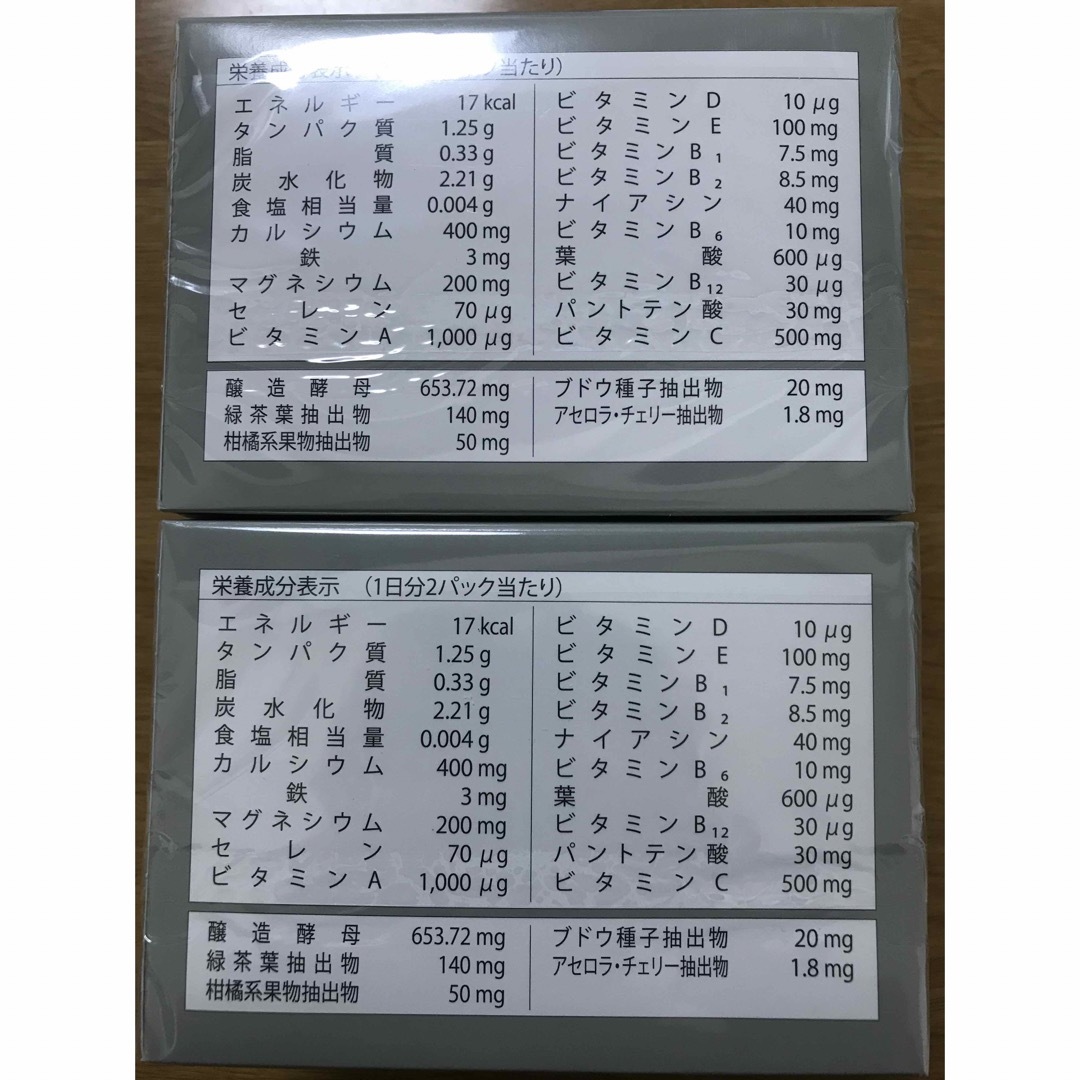 栄養成 表示 当たり)
エネルギー 17 kcal
タンパク質 1.25 g
脂質 0.33 g
炭水化物 2.21 g
食塩相当量 0.004 g
カルシウム 400 mg
鉄 3 mg
マグネシウム 200 mg
セレン 70 μg
ビタミンA 1,000 μg
ビタミンD 10 μg
ビタミンE 100 mg
ビタミンB₁ 7.5 mg
ビタミンB₂ 8.5 mg
ナイアシン 40 mg
ビタミンB₆ 10 mg
葉酸 600 μg
ビタミンB₁₂ 30 μg
パントテン酸 30 mg
ビタミンC 500 mg
醸造酵母 653.72 mg
緑茶葉抽出物 140 mg
柑橘系果物抽出物 50 mg
ブドウ種子抽出物 20 mg
アセロラ・チェリー抽出物 1.8 mg
栄養成分表示 (1日分2パック当たり)
エネルギー 17 kcal
タンパク質 1.25 g
脂質 0.33 g
炭水化物 2.21 g
食塩相当量 0.004 g
カルシウム 400 mg
鉄 3 mg
マグネシウム 200 mg
セレン 70 μg
ビタミンA 1,000 μg
ビタミンD 10 μg
ビタミンE 100 mg
ビタミンB₁ 7.5 mg
ビタミンB₂ 8.5 mg
ナイアシン 40 mg
ビタミンB₆ 10 mg
葉酸 600 μg
ビタミンB₁₂ 30 μg
パントテン酸 30 mg
ビタミンC 500 mg
醸造酵母 653.72 mg
緑茶葉抽出物 140 mg
柑橘系果物抽出物 50 mg
ブドウ種子抽出物 20 mg
アセロラ・チェリー抽出物 1.8 mg